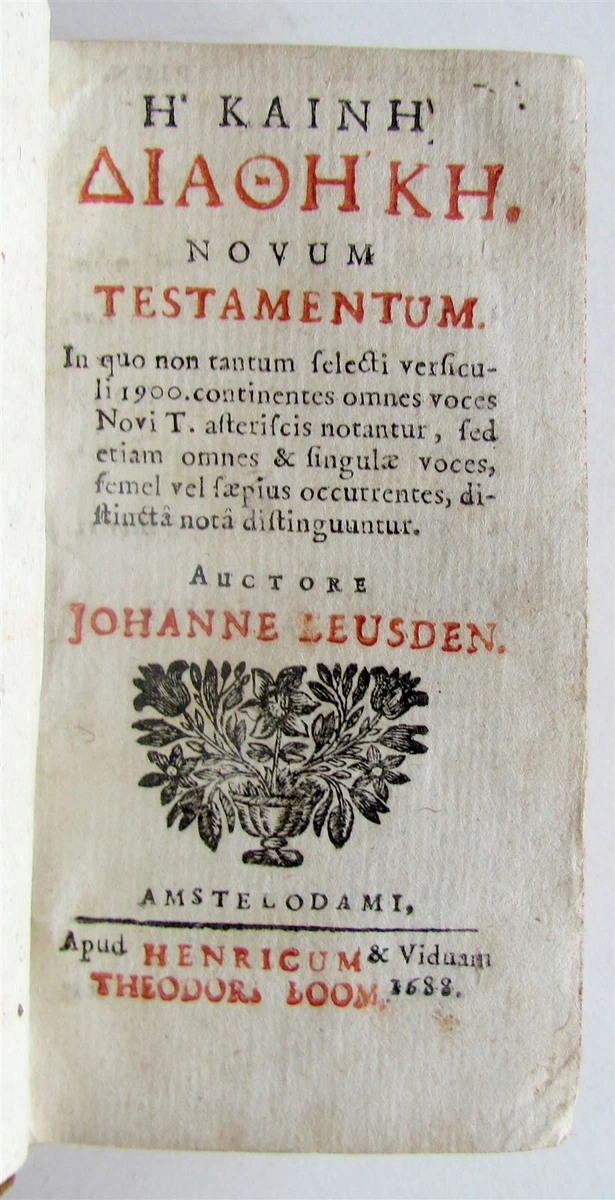 Η' ΚΑΙΝΗ'
ΔΙΑΘΗ'ΚΗ.
NOVUM
TESTAMENTUM.
In quo non tantum ſelecti verſicu-
li 1900. continentes omnes voces
Novi T. aſteriſcis notantur, ſed
etiam omnes & ſingulæ voces,
ſemel vel ſæpius occurrentes, di-
ſtinctâ notâ diſtinguuntur.
AUCTORE
JOHANNE LEUSDEN.
AMSTELODAMI,
Apud HENRICUM & Viduam
THEODORI BOOM, 1688.